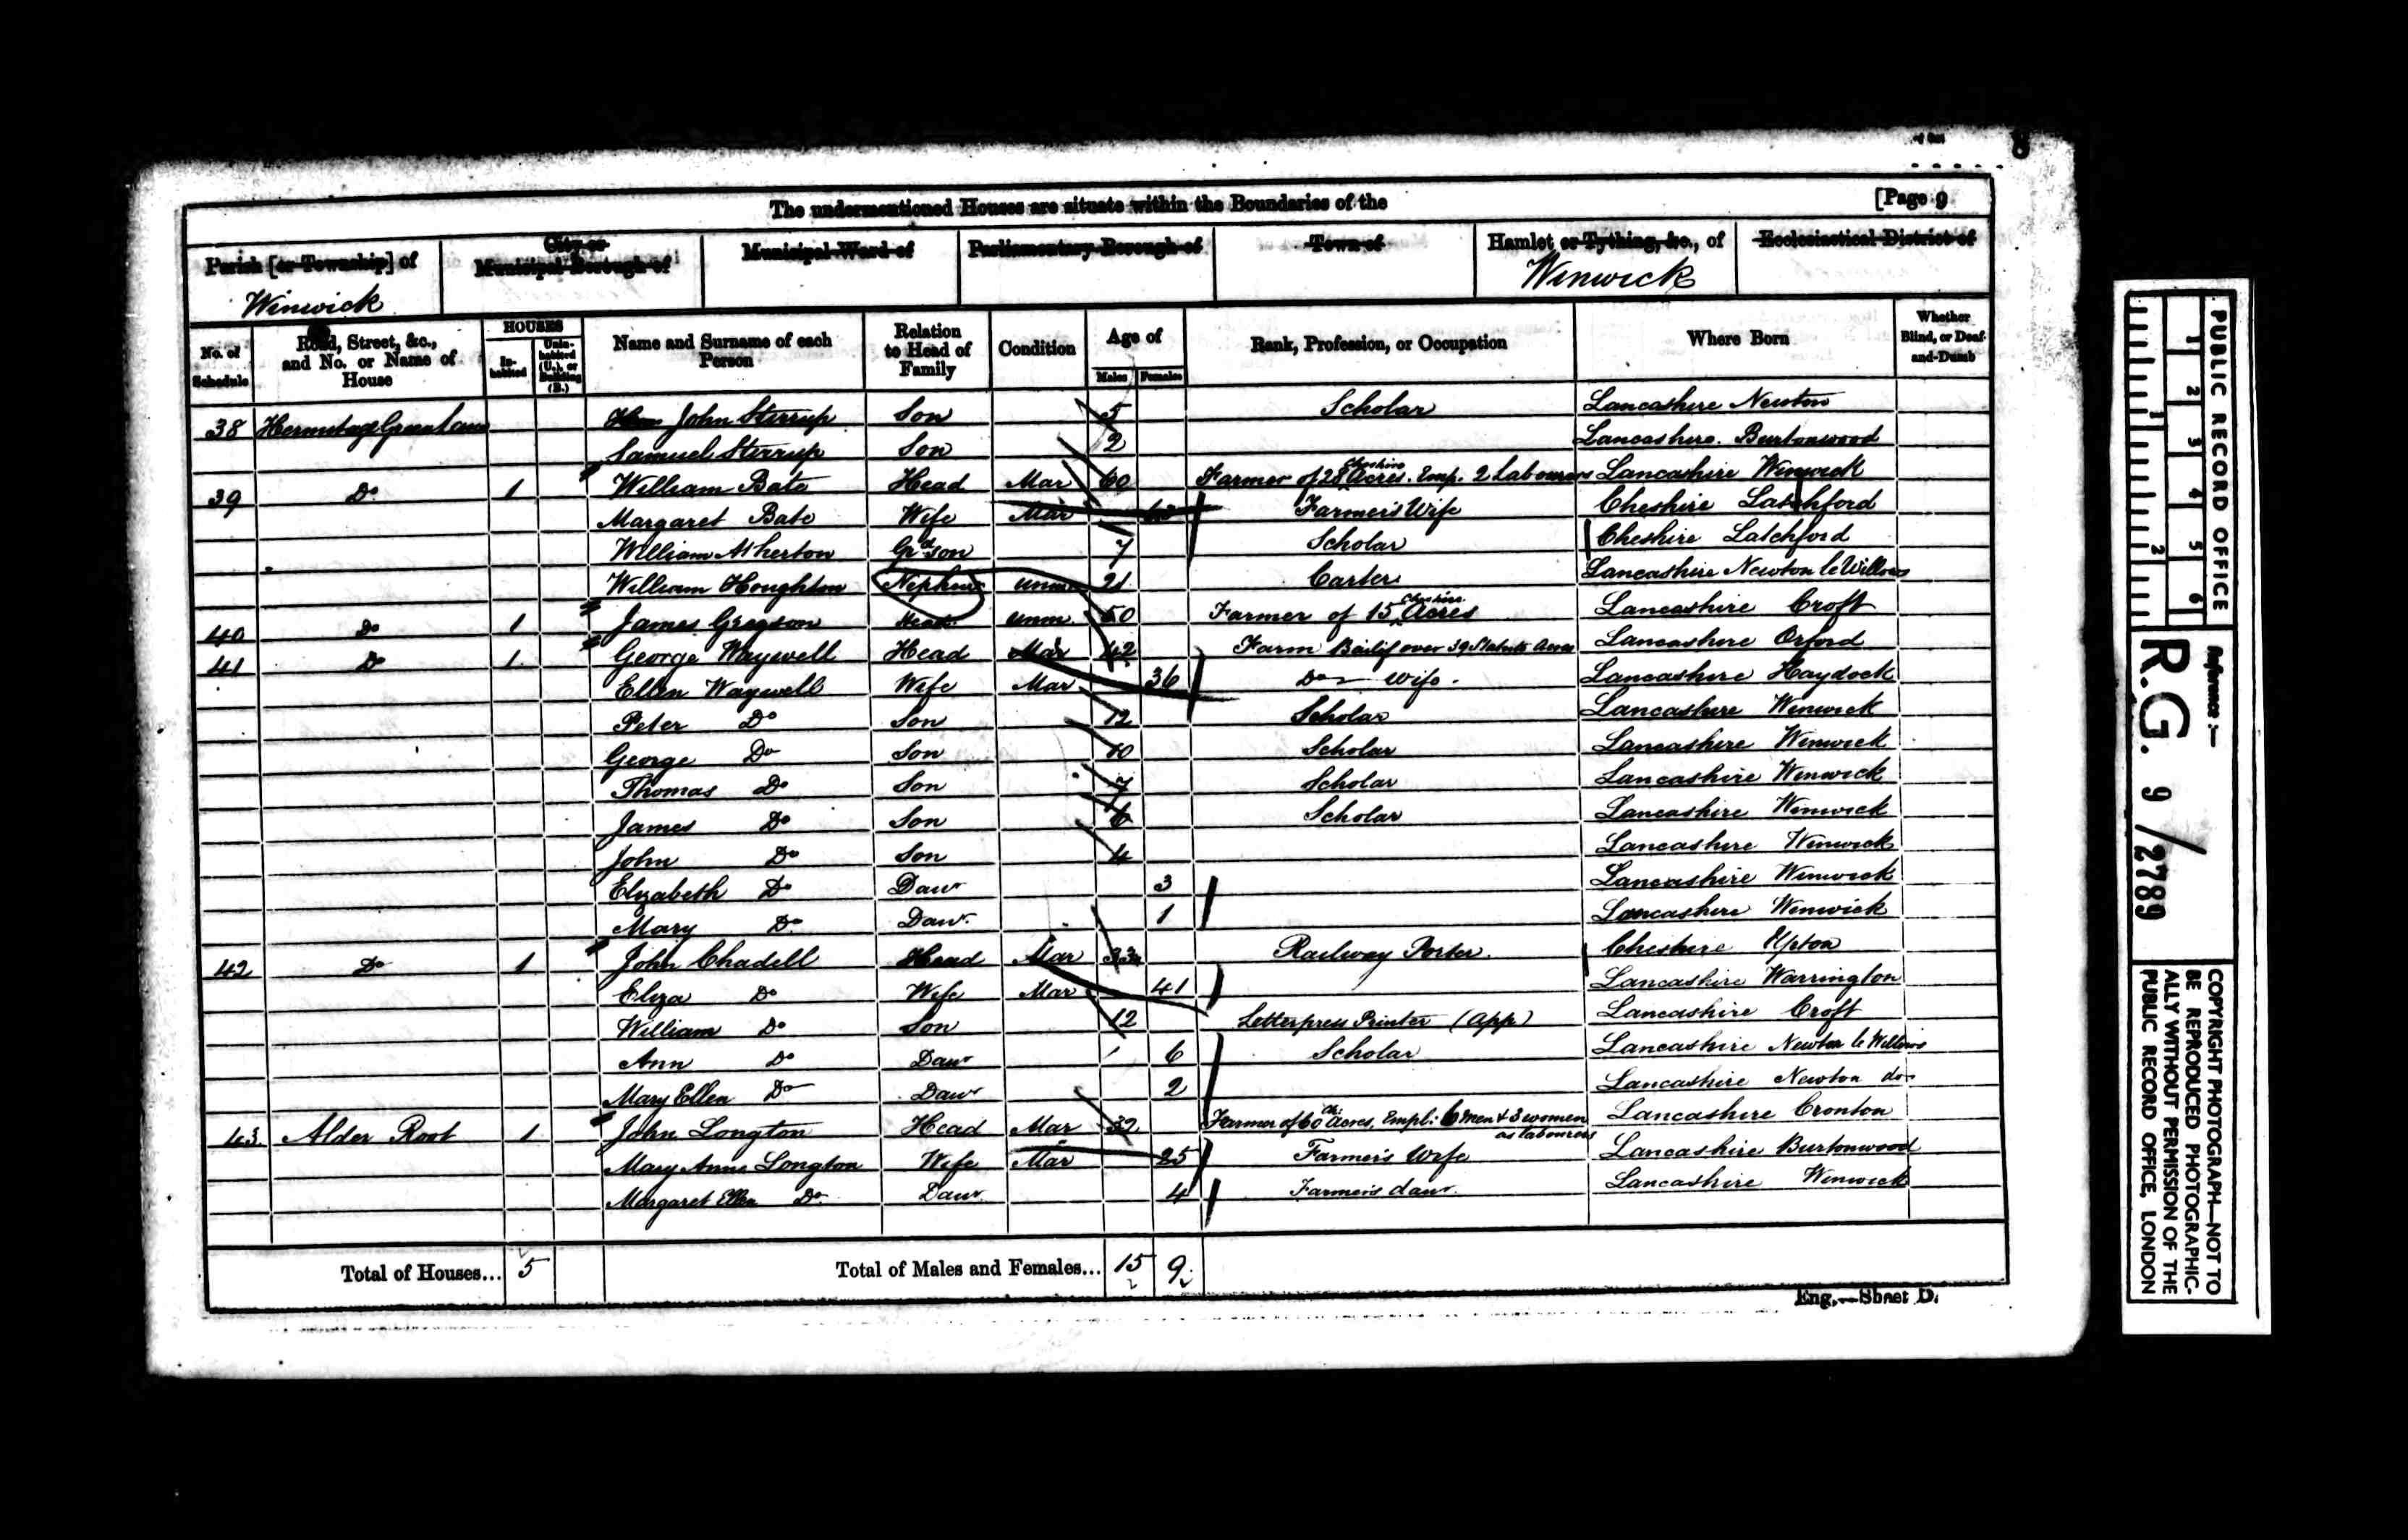 8
The undermentioned Houses are situate within the Boundaries of the [Page 9
Parish [or Township] of City or Municipal Borough of Municipal Ward of Parliamentary Borough of Town of Hamlet or Tything, &c., of Ecclesiastical District of
Winwick Winwick
No. of Schedule Road, Street, &c., and No. or Name of House HOUSES Inhabited Uninhabited (U.), or Building (B.) Name and Surname of each Person Relation to Head of Family Condition Age of Males Females Rank, Profession, or Occupation Where Born Whether Blind, or Deaf-and-Dumb
38 Hermitage Green Lane John Sterrup Son 5 Scholar Lancashire Newton
Samuel Sterrup Son 2 Lancashire. Burtonwood
39 Do 1 William Bate Head Mar 60 Farmer of 28 Cheshire Acres. Emp. 2 Labourers Lancashire Winwick
Margaret Bate Wife Mar Farmer's Wife Cheshire Latchford
William Atherton Grd son 7 Scholar Cheshire Latchford
William Houghton Nephew unm 21 Carter Lancashire Newton le Willows
40 Do 1 James Gregson Head unm 50 Farmer of 15 Cheshire Acres Lancashire Croft
41 Do 1 George Waywell Head Mar 42 Farm Bailif over 39 Statute Acres Lancashire Orford
Ellen Waywell Wife Mar 36 Do wife. Lancashire Haydock
Peter Do Son 12 Scholar Lancashire Winwick
George Do Son 10 Scholar Lancashire Winwick
Thomas Do Son 7 Scholar Lancashire Winwick
James Do Son 6 Scholar Lancashire Winwick
John Do Son 4 Lancashire Winwick
Elizabeth Do Daur 3 Lancashire Winwick
Mary Do Daur. 1 Lancashire Winwick
42 Do 1 John Chadell Head Mar Railway Porter. Cheshire Upton
Eliza Do Wife Mar 41 Lancashire Warrington
William Do Son 12 Letterpress Printer (App) Lancashire Croft
Ann Do Daur 6 Scholar Lancashire Newton le Willows
Mary Ellen Do Daur 2 Lancashire Newton do
43 Alder Root 1 John Longton Head Mar 32 Farmer of 60 Ch. Acres, Empl: 6 men & 3 women as labourers Lancashire Cronton
Mary Anne Longton Wife Mar 25 Farmer's Wife Lancashire Burtonwood
Margaret Ellen Do Daur. 4 Farmer's daur. Lancashire Winwick
Total of Houses... 5 Total of Males and Females... 15 9
Eng.—Sheet D.
PUBLIC RECORD OFFICE
1 2 3 4 5 6
1 2
Reference :—
R.G. 9/2789
COPYRIGHT PHOTOGRAPH—NOT TO
BE REPRODUCED PHOTOGRAPHIC-
ALLY WITHOUT PERMISSION OF THE
PUBLIC RECORD OFFICE, LONDON